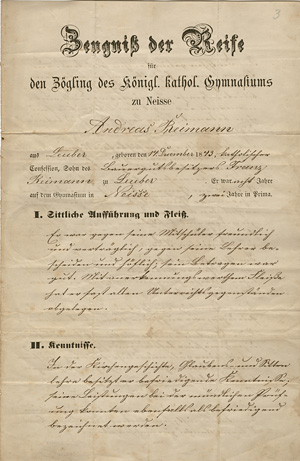 3
Zeugniß der Reife
für
den Zögling des Königl. kathol. Gymnasiums
zu Neisse
Andreas Reimann
aus Deuber, geboren den 17 December 1843, katholischer
Confession, Sohn des Bauergutsbesitzers Franz
Reimann zu Deuber. Er war acht Jahre
auf dem Gymnasium in Neisse, zwei Jahre in Prima.
I. Sittliche Aufführung und Fleiß.
Er war gegen seine Mitschüler freundlich
und verträglich, gegen seine Lehrer be-
scheiden und höflich; sein Betragen war
gut. Mit anerkennungswerthem Fleiße
hat er fast allen Unterrichtsgegenständen
obgelegen.
II. Kenntnisse.
In der Kirchengeschichte, Glaubens und Sitten
lehre besitzt er befriedigende Kenntnisse,
seine Leistungen bei der mündlichen Prüf-
ung konnten ebenfalls als befriedigend
bezeichnet werden.